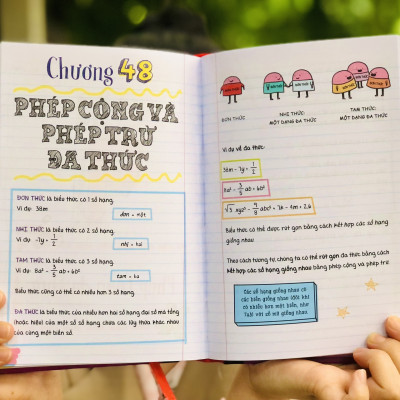 Chương 48
PHÉP CỘNG VÀ
PHÉP TRỪ
ĐA THỨC
ĐƠN THỨC là biểu thức có 1 số hạng.
Ví dụ: 38m
đơn = một
NHỊ THỨC là biểu thức có 2 số hạng.
Ví dụ: -7y + 1/2
nhị = hai
TAM THỨC là biểu thức có 3 số hạng.
Ví dụ: 8a² - 3/5 ab + 60b²
tam = ba
Biểu thức cũng có thể có nhiều hơn 3 số hạng.
ĐA THỨC là biểu thức của nhiều hơn hai số hạng đại số mà tổng
(hoặc hiệu) của một số số hạng chứa các lũy thừa khác nhau
của cùng một biến số.
ĐƠN THỨC:
NHỊ THỨC:
MỘT DẠNG ĐA THỨC
TAM THỨC:
MỘT DẠNG ĐA THỨC
Ví dụ về đa thức:
38m - 7y + 1/2
Biểu thức có thể được rút gọn bằng cách kết hợp các số hạng
giống nhau.
Theo cách tương tự, chúng ta có thể rút gọn đa thức bằng cách
kết hợp các số hạng giống nhau bằng phép cộng và phép trừ.
Các số hạng giống nhau có
các biến giống nhau (đôi khi
có nhiều hơn một biến, như
7ab) với số mũ giống nhau.